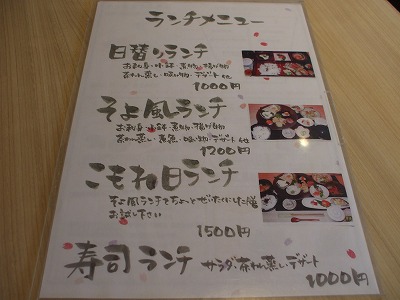 ランチメニュー
日替りランチ
お刺身・小鉢・煮物・揚げ物
茶わん蒸し・吸い物・デザート 他
1000円
そよ風ランチ
お刺身・小鉢・煮物・揚げ物
茶わん蒸し・煮魚・吸い物・デザート 他
1200円
こもれ日ランチ
そよ風ランチをちょっとぜいたくにした膳
お試し下さい
1500円
寿司ランチ サラダ・茶わん蒸し・デザート
1000円